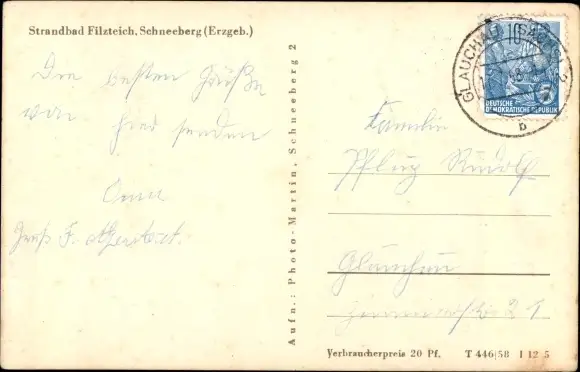 Strandbad Filzteich, Schneeberg (Erzgeb.)
Die besten Grüße
von hier senden
Oma
Gruß F.
Aufn.: Photo-Martin, Schneeberg 2
GLAUCHAU (SACHS) 2
b
10
DEUTSCHE
DEMOKRATISCHE REPUBLIK
Familie
Pflug Rudolf
Glauchau
21
Verbraucherpreis 20 Pf. T 446|58 I 12 5